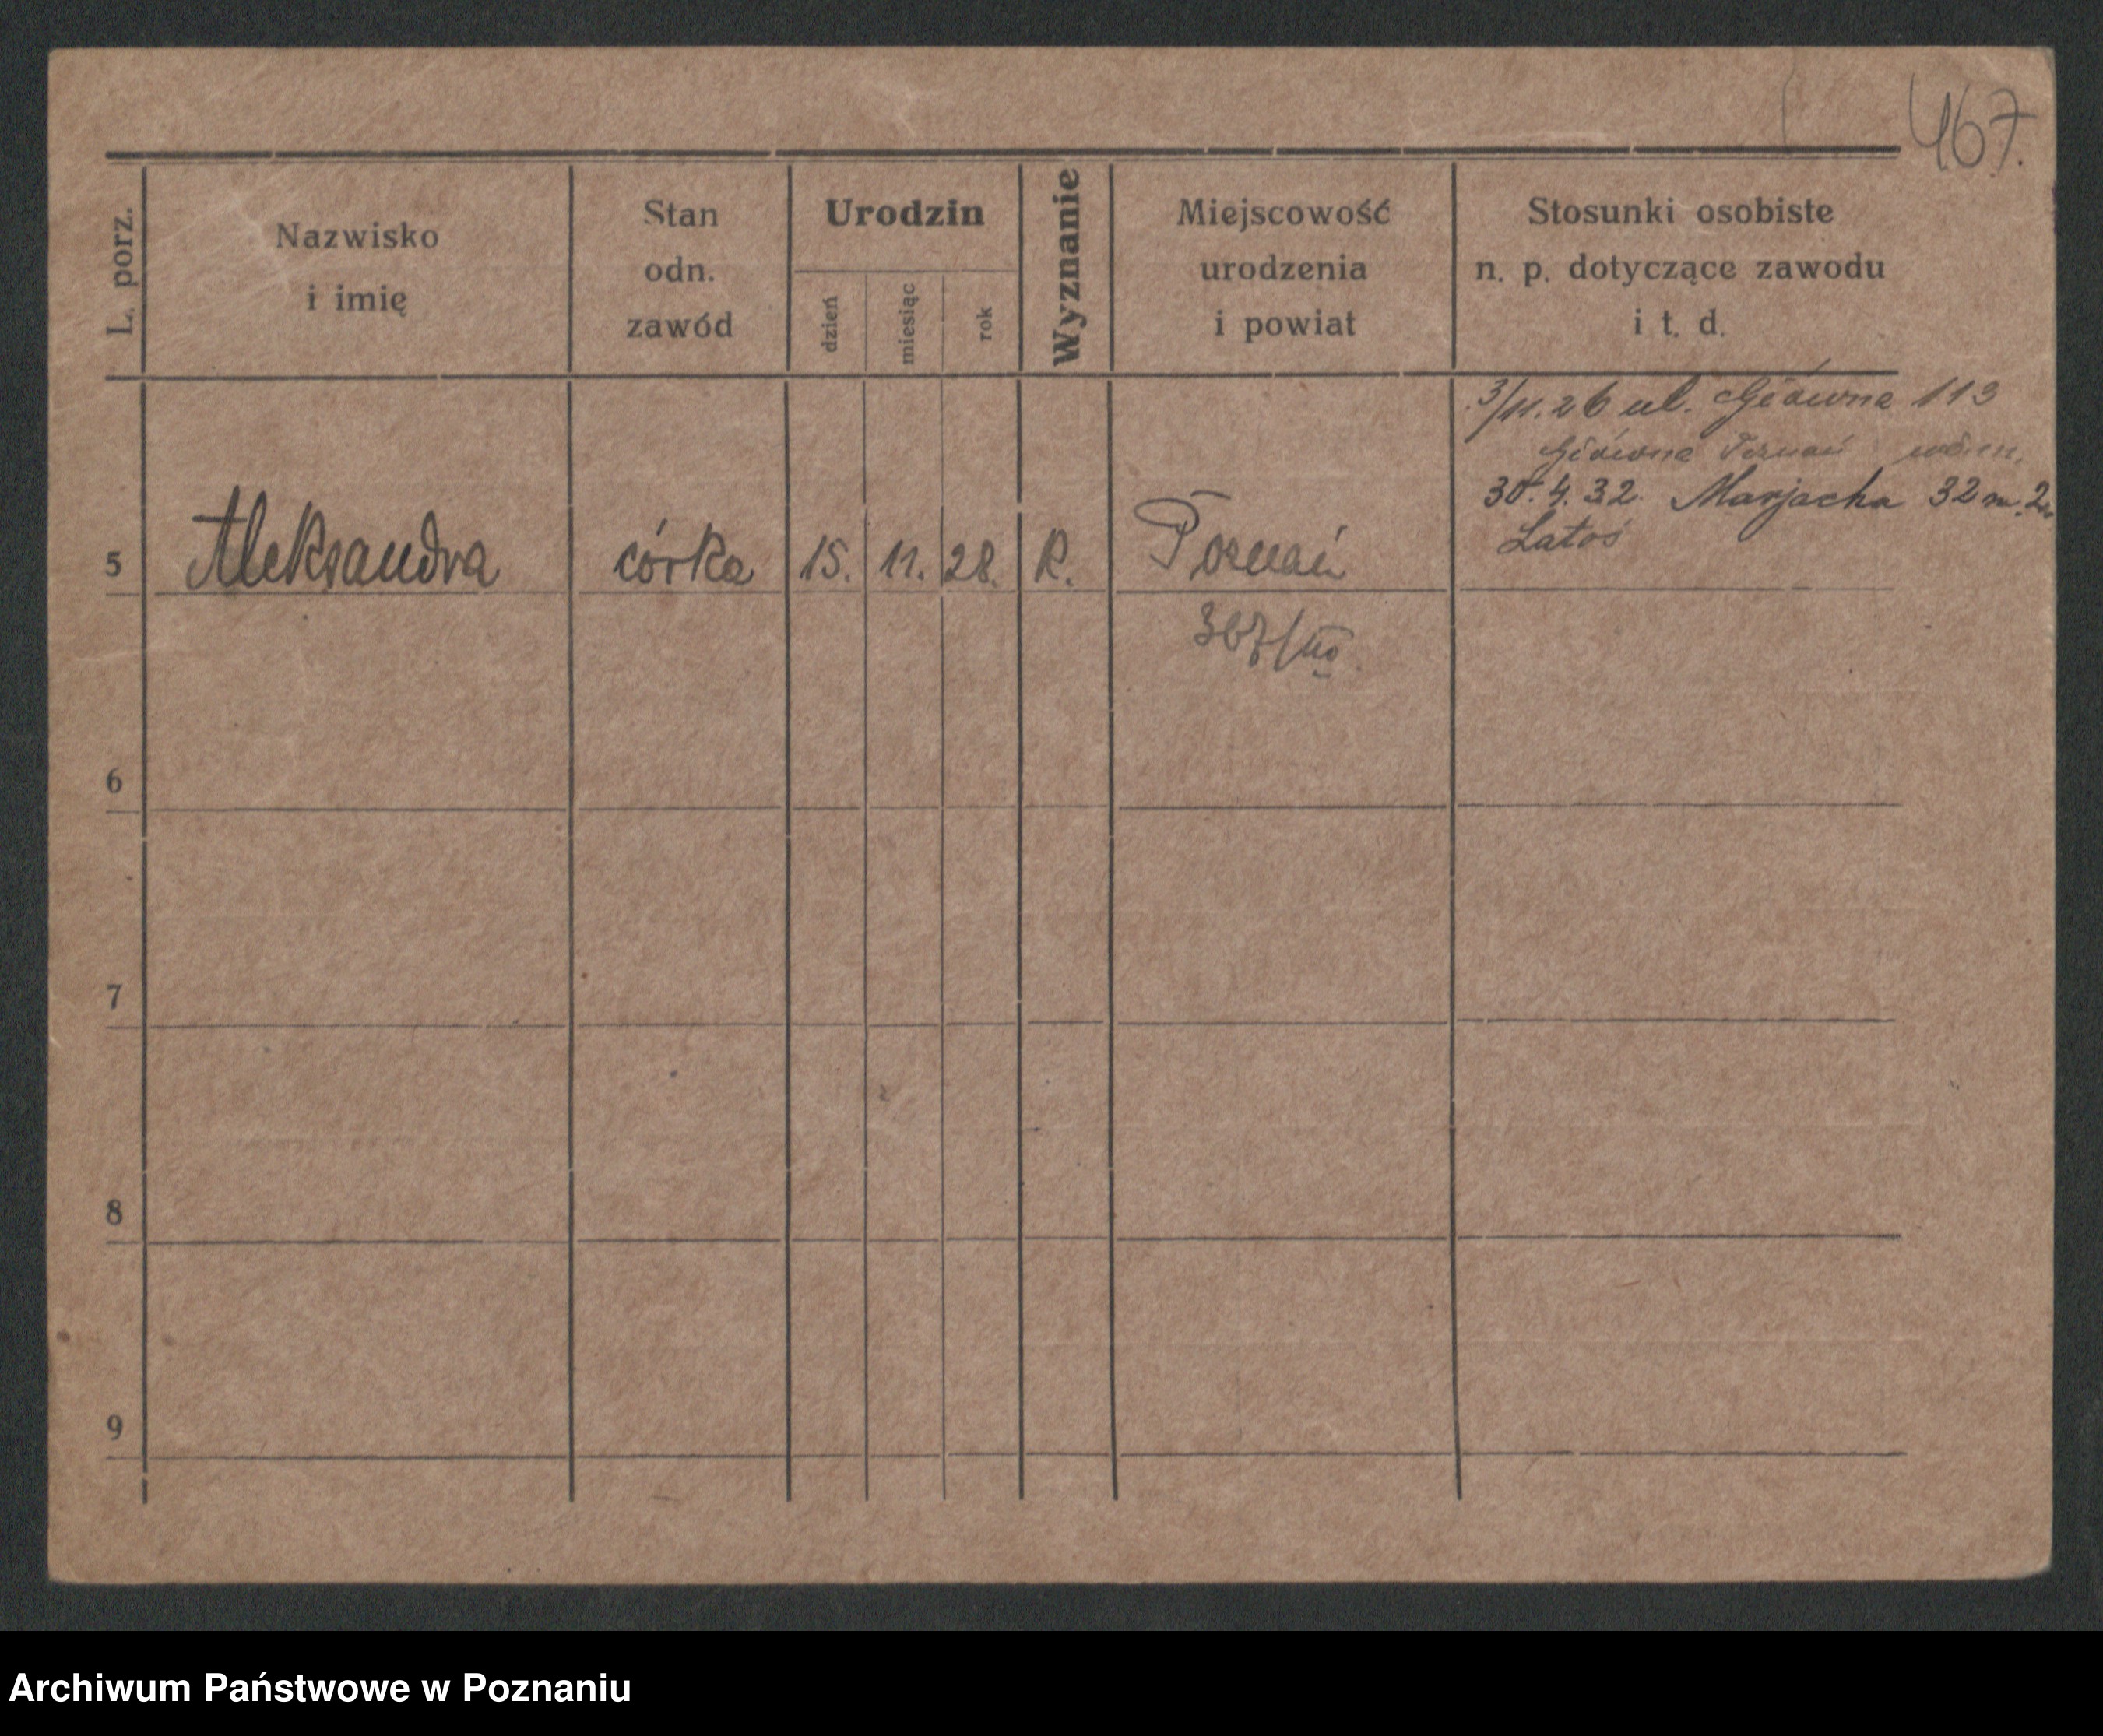 467.
L. porz.
Nazwisko
i imię
Stan
odn.
zawód
Urodzin
dzień
miesiąc
rok
Wyznanie
Miejscowość
urodzenia
i powiat
Stosunki osobiste
n. p. dotyczące zawodu
i t. d.
3/11.26 ul. Główna 113
Główna Poznań
30.4.32. Marjacka 32 m.
Latoś
5 Aleksandra córka 15. 11. 28. R. Poznań
367/
6
7
8
9
Archiwum Państwowe w Poznaniu